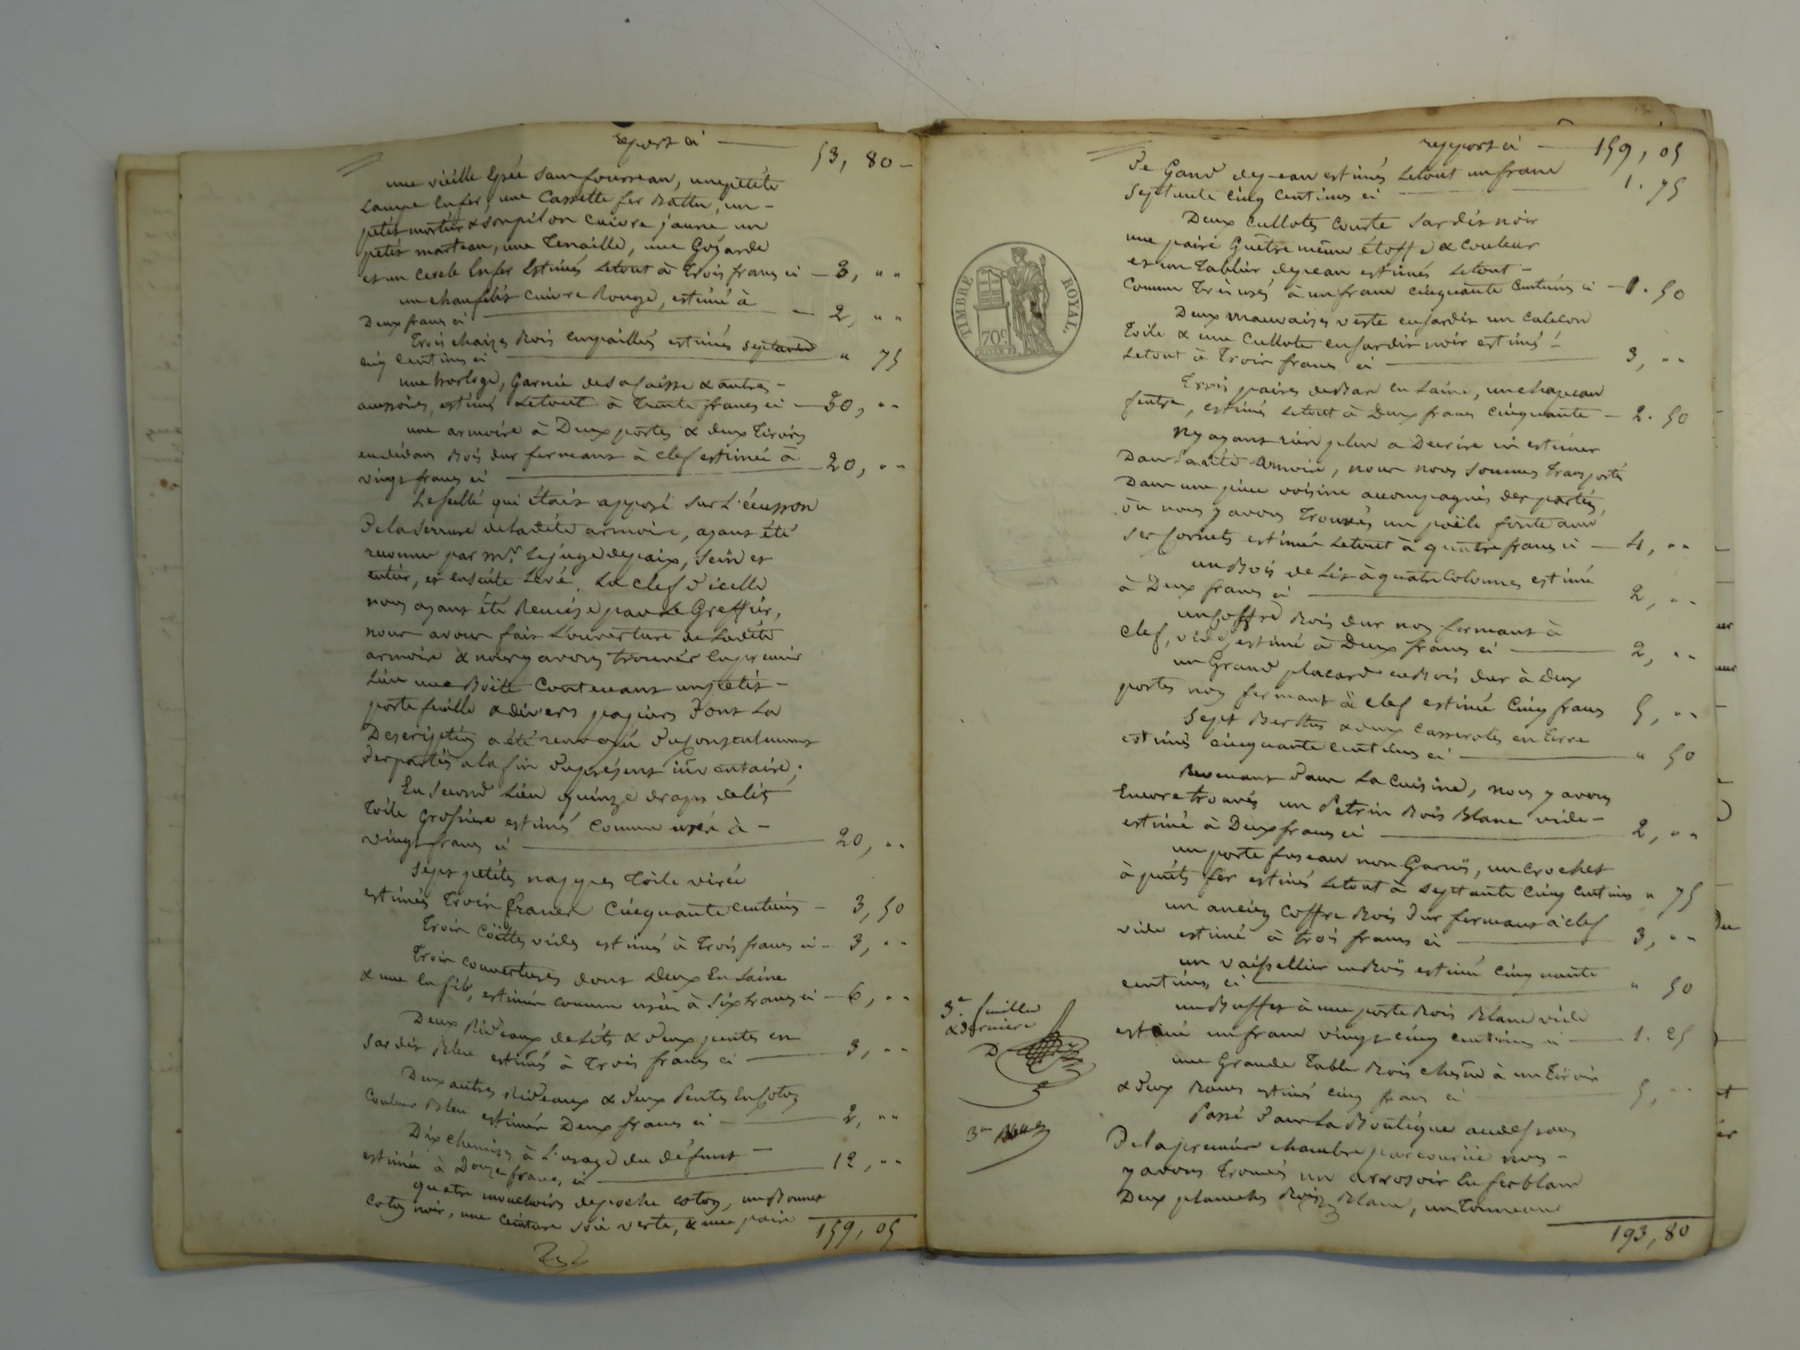 report ci — 53, 80 —
une viéille Epée sans fourreau, une petite
Lampe en fer, une Cassette fer Battu, un -
petit mortier & son pilon Cuivre jaune un
petit marteau, une Tenaille, une Goÿarde
et un Cercle en fer Estimés Letout à Trois francs ci — 3, " "
un chaufelit cuivre Rouge, estimé à
Deux francs ci — 2, " "
Trois chaizes Bois empaillés estimés septante
cinq Centimes ci — " 75
une horloge, Garnie de sa caisse & autres -
accessoires, estimé Letout à Trente francs ci — 30, " "
une armoire à Deux portes & deux Tiroirs
en dedans Bois dur fermant à Clef estimée à
vingt francs ci — 20, " "
Le scellé qui étois apposé sur L'écusson
De la Serrure de ladite armoire, ayant été
reconnu par Mr. Le juge de paix, Sein et
entier, et ensuite Levé. La Clef d'icelle
nous ayant été Remise par Le Greffier,
nous avons fait L'ouverture de Ladite
armoire & nous y avons trouvés en premier
Lieu une Boite Contenant un petit -
porte feuille & divers papiers Dont La
Description a été renvoyée du Consentement
des parties a la fin du présent inventaire;
En Second Lieu quinze draps de lit
Toile Grossiere estimés comme usés à -
vingt francs ci — 20, " "
Sept petites nappes Toile virée
estimées Trois francs Cinquante centimes — 3, 50
Trois coëttes vides estimés à Trois francs ci — 3, " "
Trois couvertures dont Deux En Laine
& une en fil, estimées comme usées à Six francs ci — 6, " "
Deux Rideaux de Lits & deux pentes en
Sardis Bleu estimés à Trois francs ci — 3, " "
Deux autres Rideaux & deux Pentes En Coton
Couleur Bleu estimés Deux francs ci — 2, " "
Dix chemises à L'usage du défunt —
estimées à Douze francs ci — 12, " "
quatre mouchoirs de poche coton, un Bonnet
Coton noir, une Ceinture soie verte, & une paire
159, 05
report ci — 159, 05
De Gand de peau estimés Letout un franc
Septante cinq Centimes ci — 1. 75
Deux Cullotes Courte Sardis noir
une paire Guêtre même étoffe & Couleur
et un Tablier de peau estimés Letout -
Comme Très usés à un franc cinquante Centimes ci — 1. 50
Deux mauvaises veste en Sardis un Caleçon
Toile & une Cullote en Sardis noir estimés -
Letout à Trois francs ci — 3, " "
Trois paires de Bas en Laine, un chapeau
feutre, estimés Letout à Deux francs cinquante — 2. 50
N'y ayant rien plus a Decrire ni estimer
Dans Ladite Armoire, nous nous sommes transportés
Dans une pièce voisine accompagnés des parties,
où nous y avons Trouvés un poële fonte avec
ses Cornets estimés Letout à quatre francs ci — 4, " "
un Bois de Lit à quatre Colonnes estimé
à Deux francs ci — 2, " "
un Coffre Bois dur non fermant à
Clef, vide, estimé à Deux francs ci — 2, " "
un Grand placard en Bois dur à deux
portes non fermant à clef estimé Cinq francs 5, " "
Sept Berthes & deux Casseroles en Terre
estimés cinquante centimes ci — " 50
Revenant Dans La Cuisine, nous y avons
Encore trouvés un Petrin Bois Blanc vide -
estimé à Deux francs ci — 2, " "
un porte fuseau non Garnis, un Crochet
à puits fer estimés Letout à Septante Cinq Centimes " 75
un ancien Coffre Bois dur fermant à clef
vide estimé à trois francs ci — 3, " "
un vaissellier en Bois estimé Cinquante
centimes, ci — " 50
un Buffet à une porte Bois Blanc vide
estimé un franc vingt cinq centimes ci — 1. 25
une Grande Table Bois chesne à un Tiroir
& deux Bancs estimés cinq francs ci — 5, " "
Passé Dans La Boutique au dessous
De la premiere chambre parcourüe nous -
y avons Trouvés un arrosoir en fer blanc
Deux planches Bois Blanc, un Tonneau
193, 80
TIMBRE ROYAL
70c
3e. feuille
& derniere